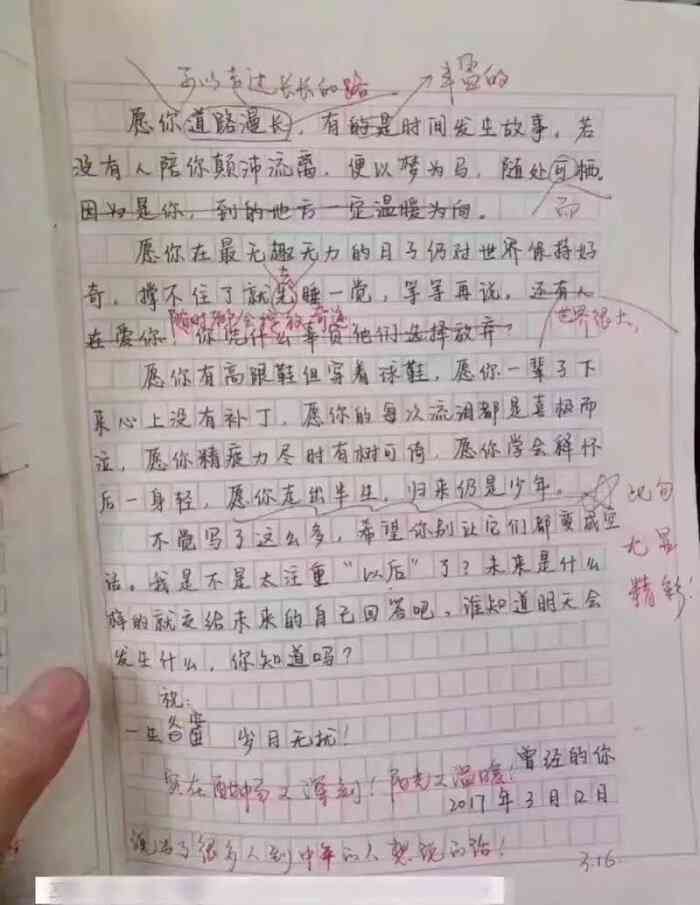 可以走过长长的路 丰盈的
愿你道路漫长，有的是时间发生故事，若
没有人陪你颠沛流离，便以梦为马，随处可栖。
因为是你，到的地方一定温暖为向。 而
愿你在最无趣无力的日子仍对世界保持好
奇，撑不住了就先睡一觉，等等再说，还有人
去
随时都会 奇迹 世界很大，
在爱你，你凭什么辜负他们选择放弃？
愿你有高跟鞋但穿着球鞋，愿你一辈子下
来心上没有补丁，愿你的每次流泪都是喜极而
泣，愿你精疲力尽时有树可倚，愿你学会释怀
后一身轻，愿你走出半生，归来仍是少年。 此句
不觉写了这么多，希望你别让它们都变成空 尤显
话。我是不是太注重“以后”了？未来是什么 精彩！
样的就交给未来的自己回答吧，谁知道明天会
发生什么，你知道吗？
祝：
一生 岁月无扰！
曾经的你
实在酣畅又深刻！阳光又温暖！
2017年3月12日
说出了很多人到中年的人想说的话！
3.16